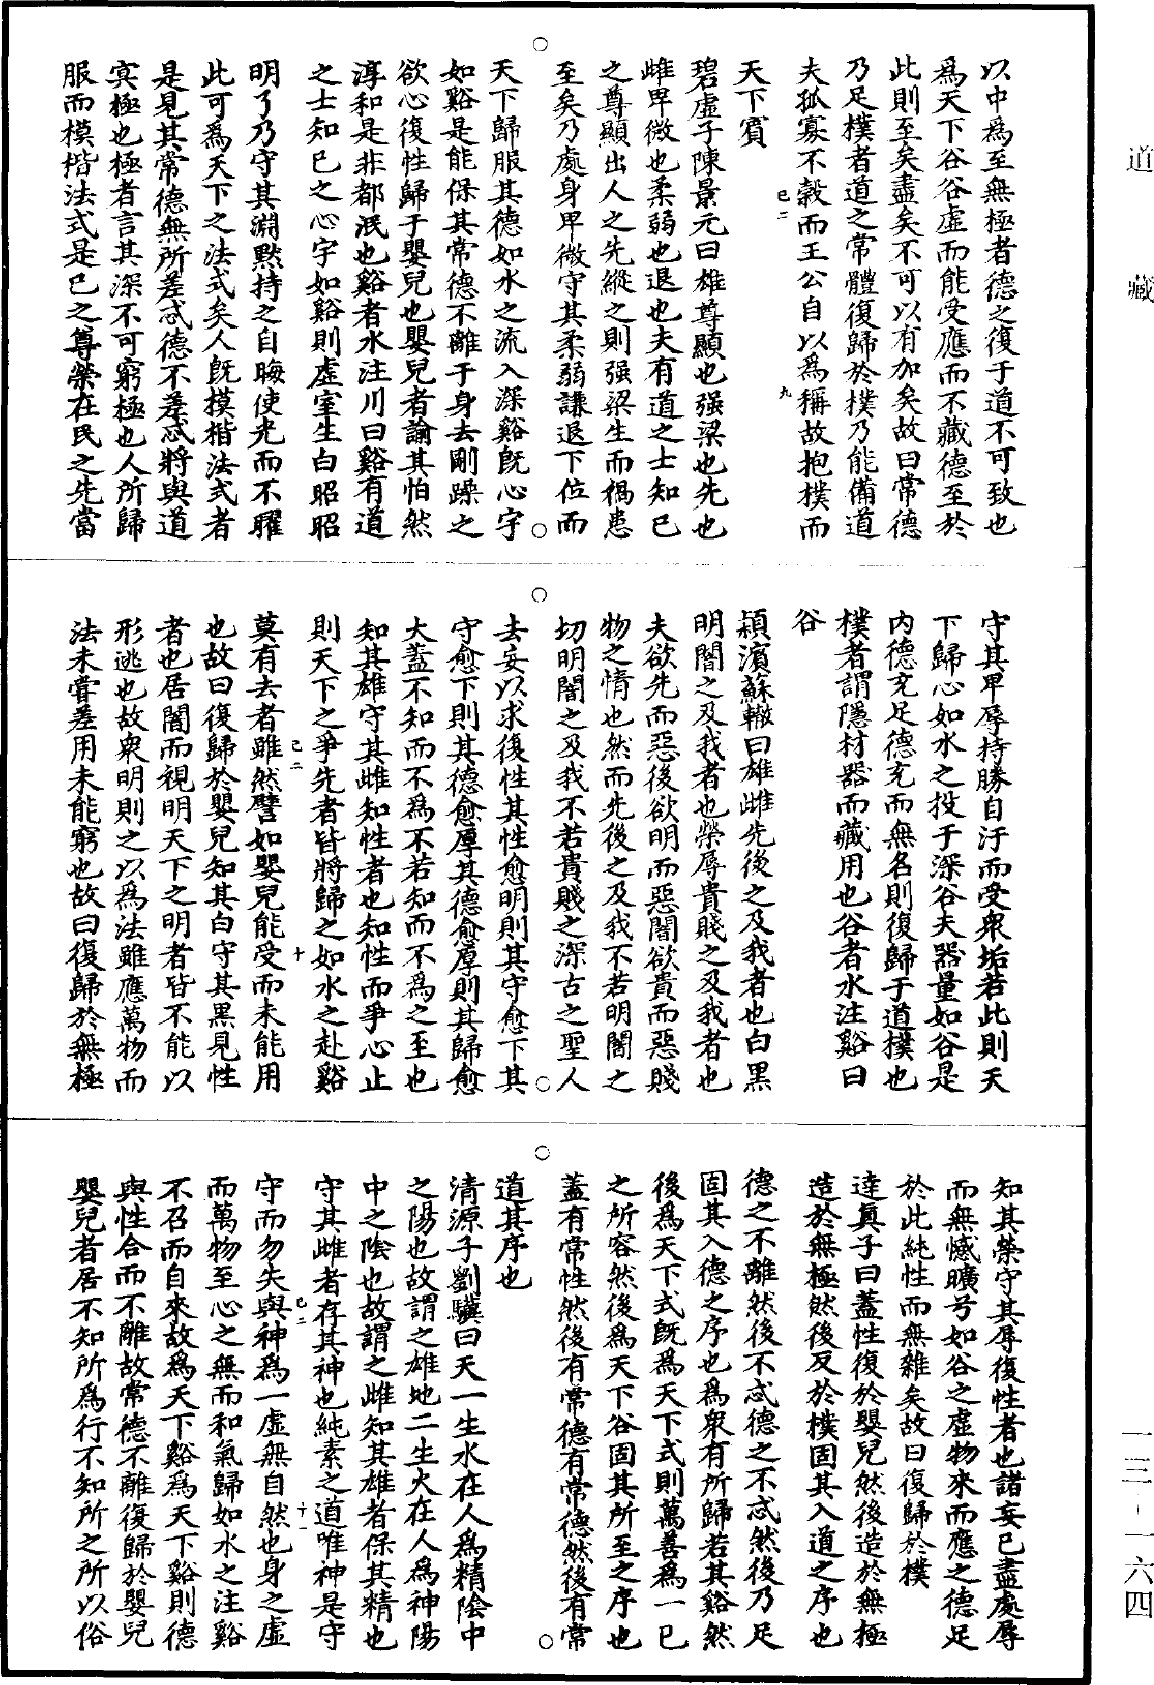 道藏
以中為至無極者德之復于道不可致也
為天下谷谷虛而能受應而不藏德至於
此則至矣盡矣不可以有加矣故曰常德
乃足樸者道之常體復歸於樸乃能備道
夫孤寡不穀而王公自以為稱故抱樸而
己二
九
天下賓
碧虛子陳景元曰雄尊顯也强梁也先也
雌卑微也柔弱也退也夫有道之士知己
之尊顯出人之先縱之則强梁生而禍患
至矣乃處身卑微守其柔弱謙退下位而
天下歸服其德如水之流入深谿旣心宇
如谿是能保其常德不離于身去剛躁之
欲心復性歸于嬰兒也嬰兒者諭其怕然
淳和是非都泯也谿者水注川曰谿有道
之士知己之心宇如谿則虛室生白昭昭
明了乃守其淵黙持之自晦使光而不矅
此可為天下之法式矣人旣摸楷法式者
是見其常德無所差忒德不差忒將與道
㝠極也極者言其深不可窮極也人所歸
服而模楷法式是己之尊榮在民之先當
守其卑辱持勝自汙而受衆垢若此則天
下歸心如水之投于深谷夫器量如谷是
內德充足德充而無名則復歸于道樸也
樸者謂隱材器而藏用也谷者水注谿曰
谷
潁濱蘇轍曰雄雌先後之及我者也白黑
明闇之及我者也榮辱貴賤之及我者也
夫欲先而惡後欲明而惡闇欲貴而惡賤
物之情也然而先後之及我不若明闇之
切明闇之及我不若貴賤之深古之聖人
去妄以求復性其性愈明則其守愈下其
守愈下則其德愈厚其德愈厚則其歸愈
大蓋不知而不為不若知而不為之至也
知其雄守其雌知性者也知性而爭心止
則天下之爭先者皆將歸之如水之赴谿
莫有去者雖然譬如嬰兒能受而未能用
己二
十
也故曰復歸於嬰兒知其白守其黑見性
者也居闇而視明天下之明者皆不能以
形逃也故衆明則之以為法雖應萬物而
法未嘗差用未能窮也故曰復歸於無極
知其榮守其辱復性者也諸妄已盡處辱
而無憾曠兮如谷之虛物來而應之德足
於此純性而無雜矣故曰復歸於樸
達真子曰蓋性復於嬰兒然後造於無極
造於無極然後及於樸固其入道之序也
德之不離然後不忒德之不忒然後乃足
固其入德之序也為衆有所歸若其谿然
後為天下式旣為天下式則萬善為一己
之所容然後為天下谷固其所至之序也
蓋有常性然後有常德有常德然後有常
道其序也
清源子劉驥曰天一生水在人為精陰中
之陽也故謂之雄地二生火在人為神陽
中之陰也故謂之雌知其雄者保其精也
守其雌者存其神也純素之道唯神是守
守而勿失與神為一虛無自然也身之虛
己二
十一
而萬物至心之無而和氣歸如水之注谿
不召而自來故為天下谿為天下谿則德
與性合而不離故常德不離復歸於嬰兒
嬰兒者居不知所為行不知所之所以俗
一三-一六四